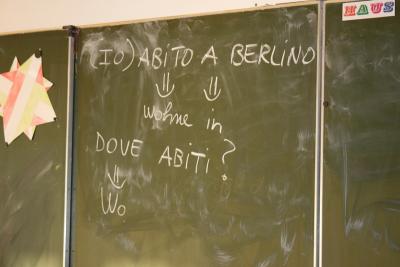 (IO) ABITO A BERLINO
⇓ ⇓
wohne in
DOVE ABITI?
⇓
Wo
HAUS